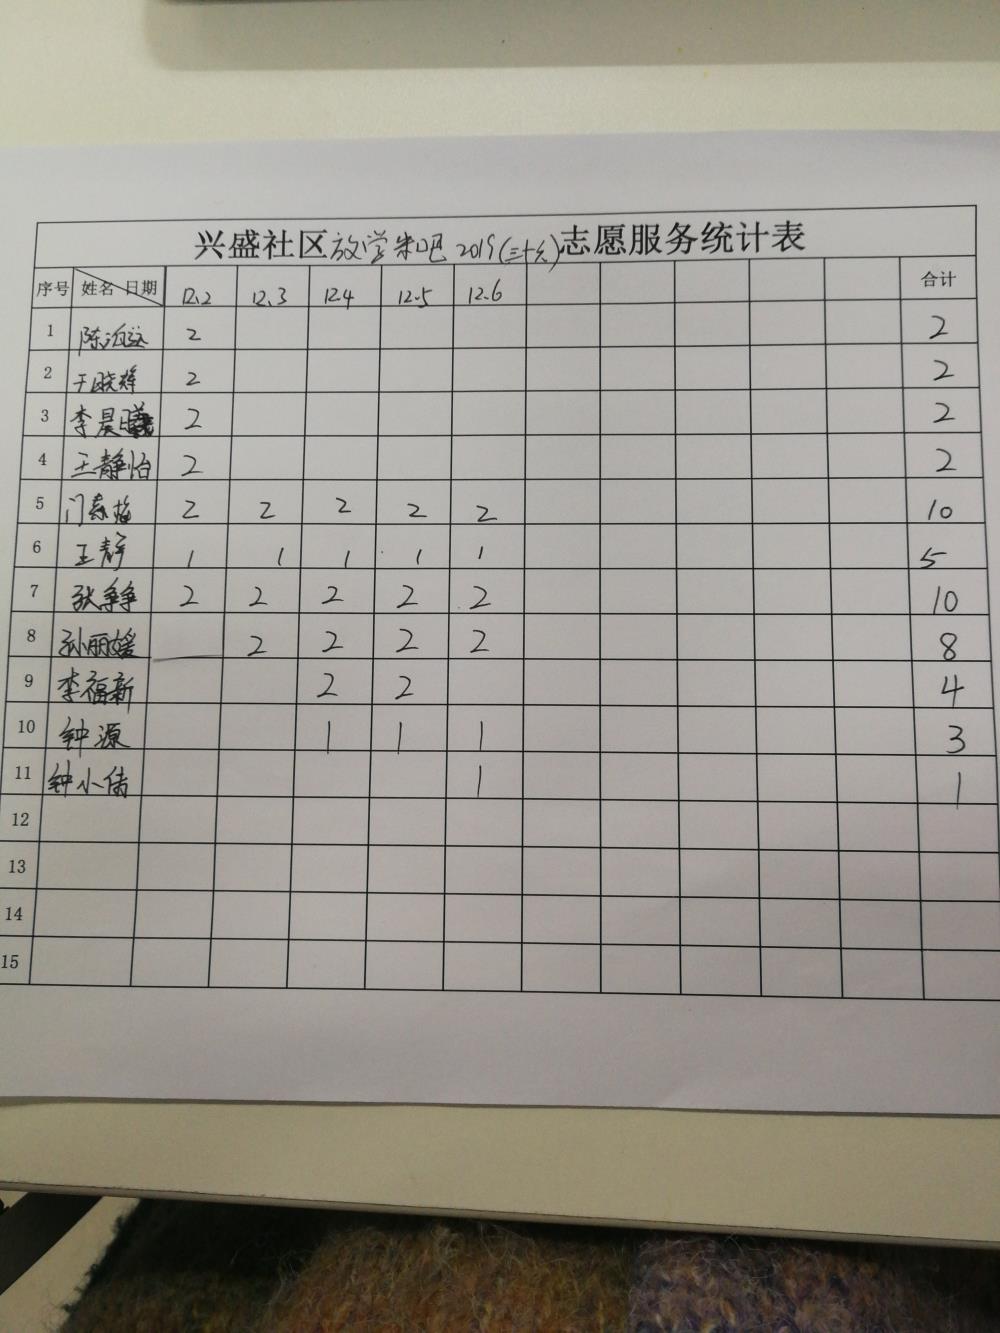 兴盛社区放学来吧2019(三十六)志愿服务统计表
序号 姓名 日期 12.2 12.3 12.4 12.5 12.6 合计
1 陈 2 2
2 于晓辉 2 2
3 李晨曦 2 2
4 王静怡 2 2
5 门春梅 2 2 2 2 2 10
6 王静 1 1 1 1 1 5
7 张争争 2 2 2 2 2 10
8 孙丽媛 2 2 2 2 8
9 李福新 2 2 4
10 钟源 1 1 1 3
11 钟小倩 1 1
12
13
14
15